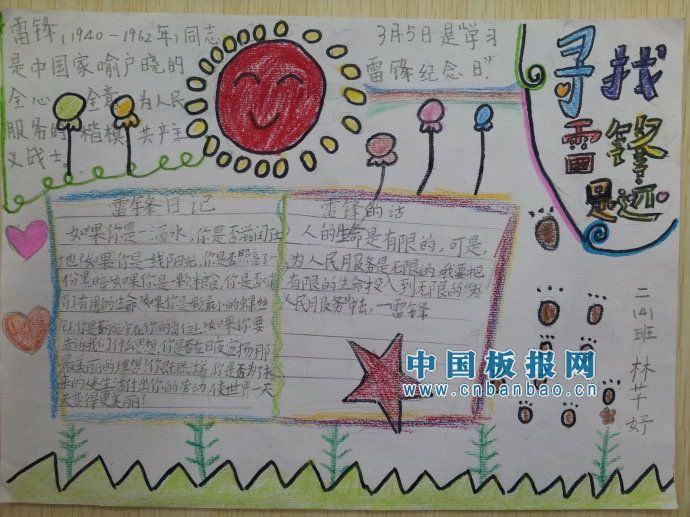 雷锋(1940-1962年)同志
是中国家喻户晓的
全心 全意 为人民
服务的 楷模 共产主
义战士。
3月5日是“学习
雷锋纪念日”。
寻找
雷锋
足迹
雷锋日记
如果你是一滴水,你是否滋润
如果你是一线阳光,你是否照亮了一
份黑暗如果你是一颗粮食,你是否
有用的生命如果你是最小的螺丝
你的岗位上如果你要
告诉我们什么思想,你是否在日夜宣扬那
最美丽的理想!你既然活着,你是否为了未
来的 生活付出你的劳动,使世界一天
天变得更美丽!
雷锋的话
人的生命是有限的,可是,
为人民服务是无限的,我要把
有限的生命投入到无限的“为
人民服务”中去。—雷锋
中国板报网
www.cnbanbao.cn
二(4)班 林芊妤